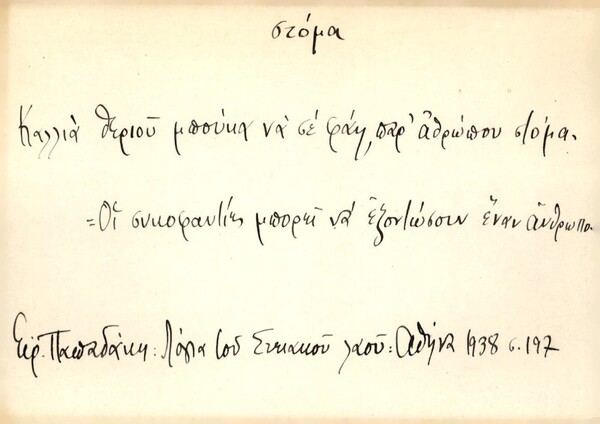 στόμα
Καλλιὰ θεριοῦ μπούκα νὰ σὲ φάῃ, παρ' ἀθρώπου στόμα.
=Οἱ συκοφαντίες μπορεῖ νά ἐξοντώσουν ἕναν ἄνθρωπο.
Εἰρ. Παπαδάκη: Λόγια τοῦ Στειακοῦ λαοῦ: Ἀθήνα 1938 σ. 197